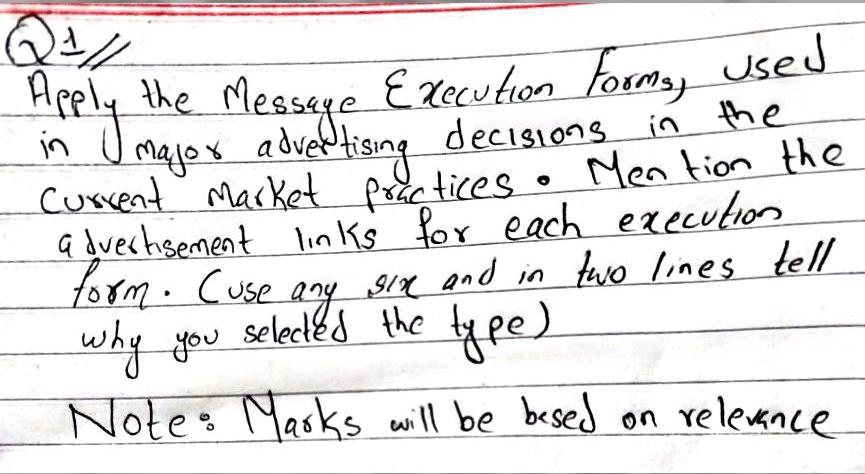 Q1//
Apply the Message Execution Forms, used
in major advertising decisions in the
current Market practices. Mention the
advertisement links for each execution
form. (use any six and in two lines tell
why you selected the type)
Note: Marks will be based on relevance